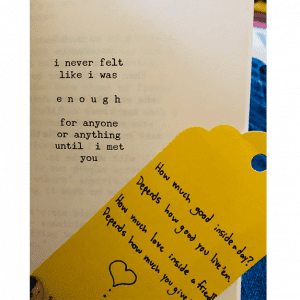 i never felt
like i was
e n o u g h
for anyone
or anything
until i met
you
How much good inside a day?
Depends how good you live 'em
How much love inside a friend
Depends how much you give